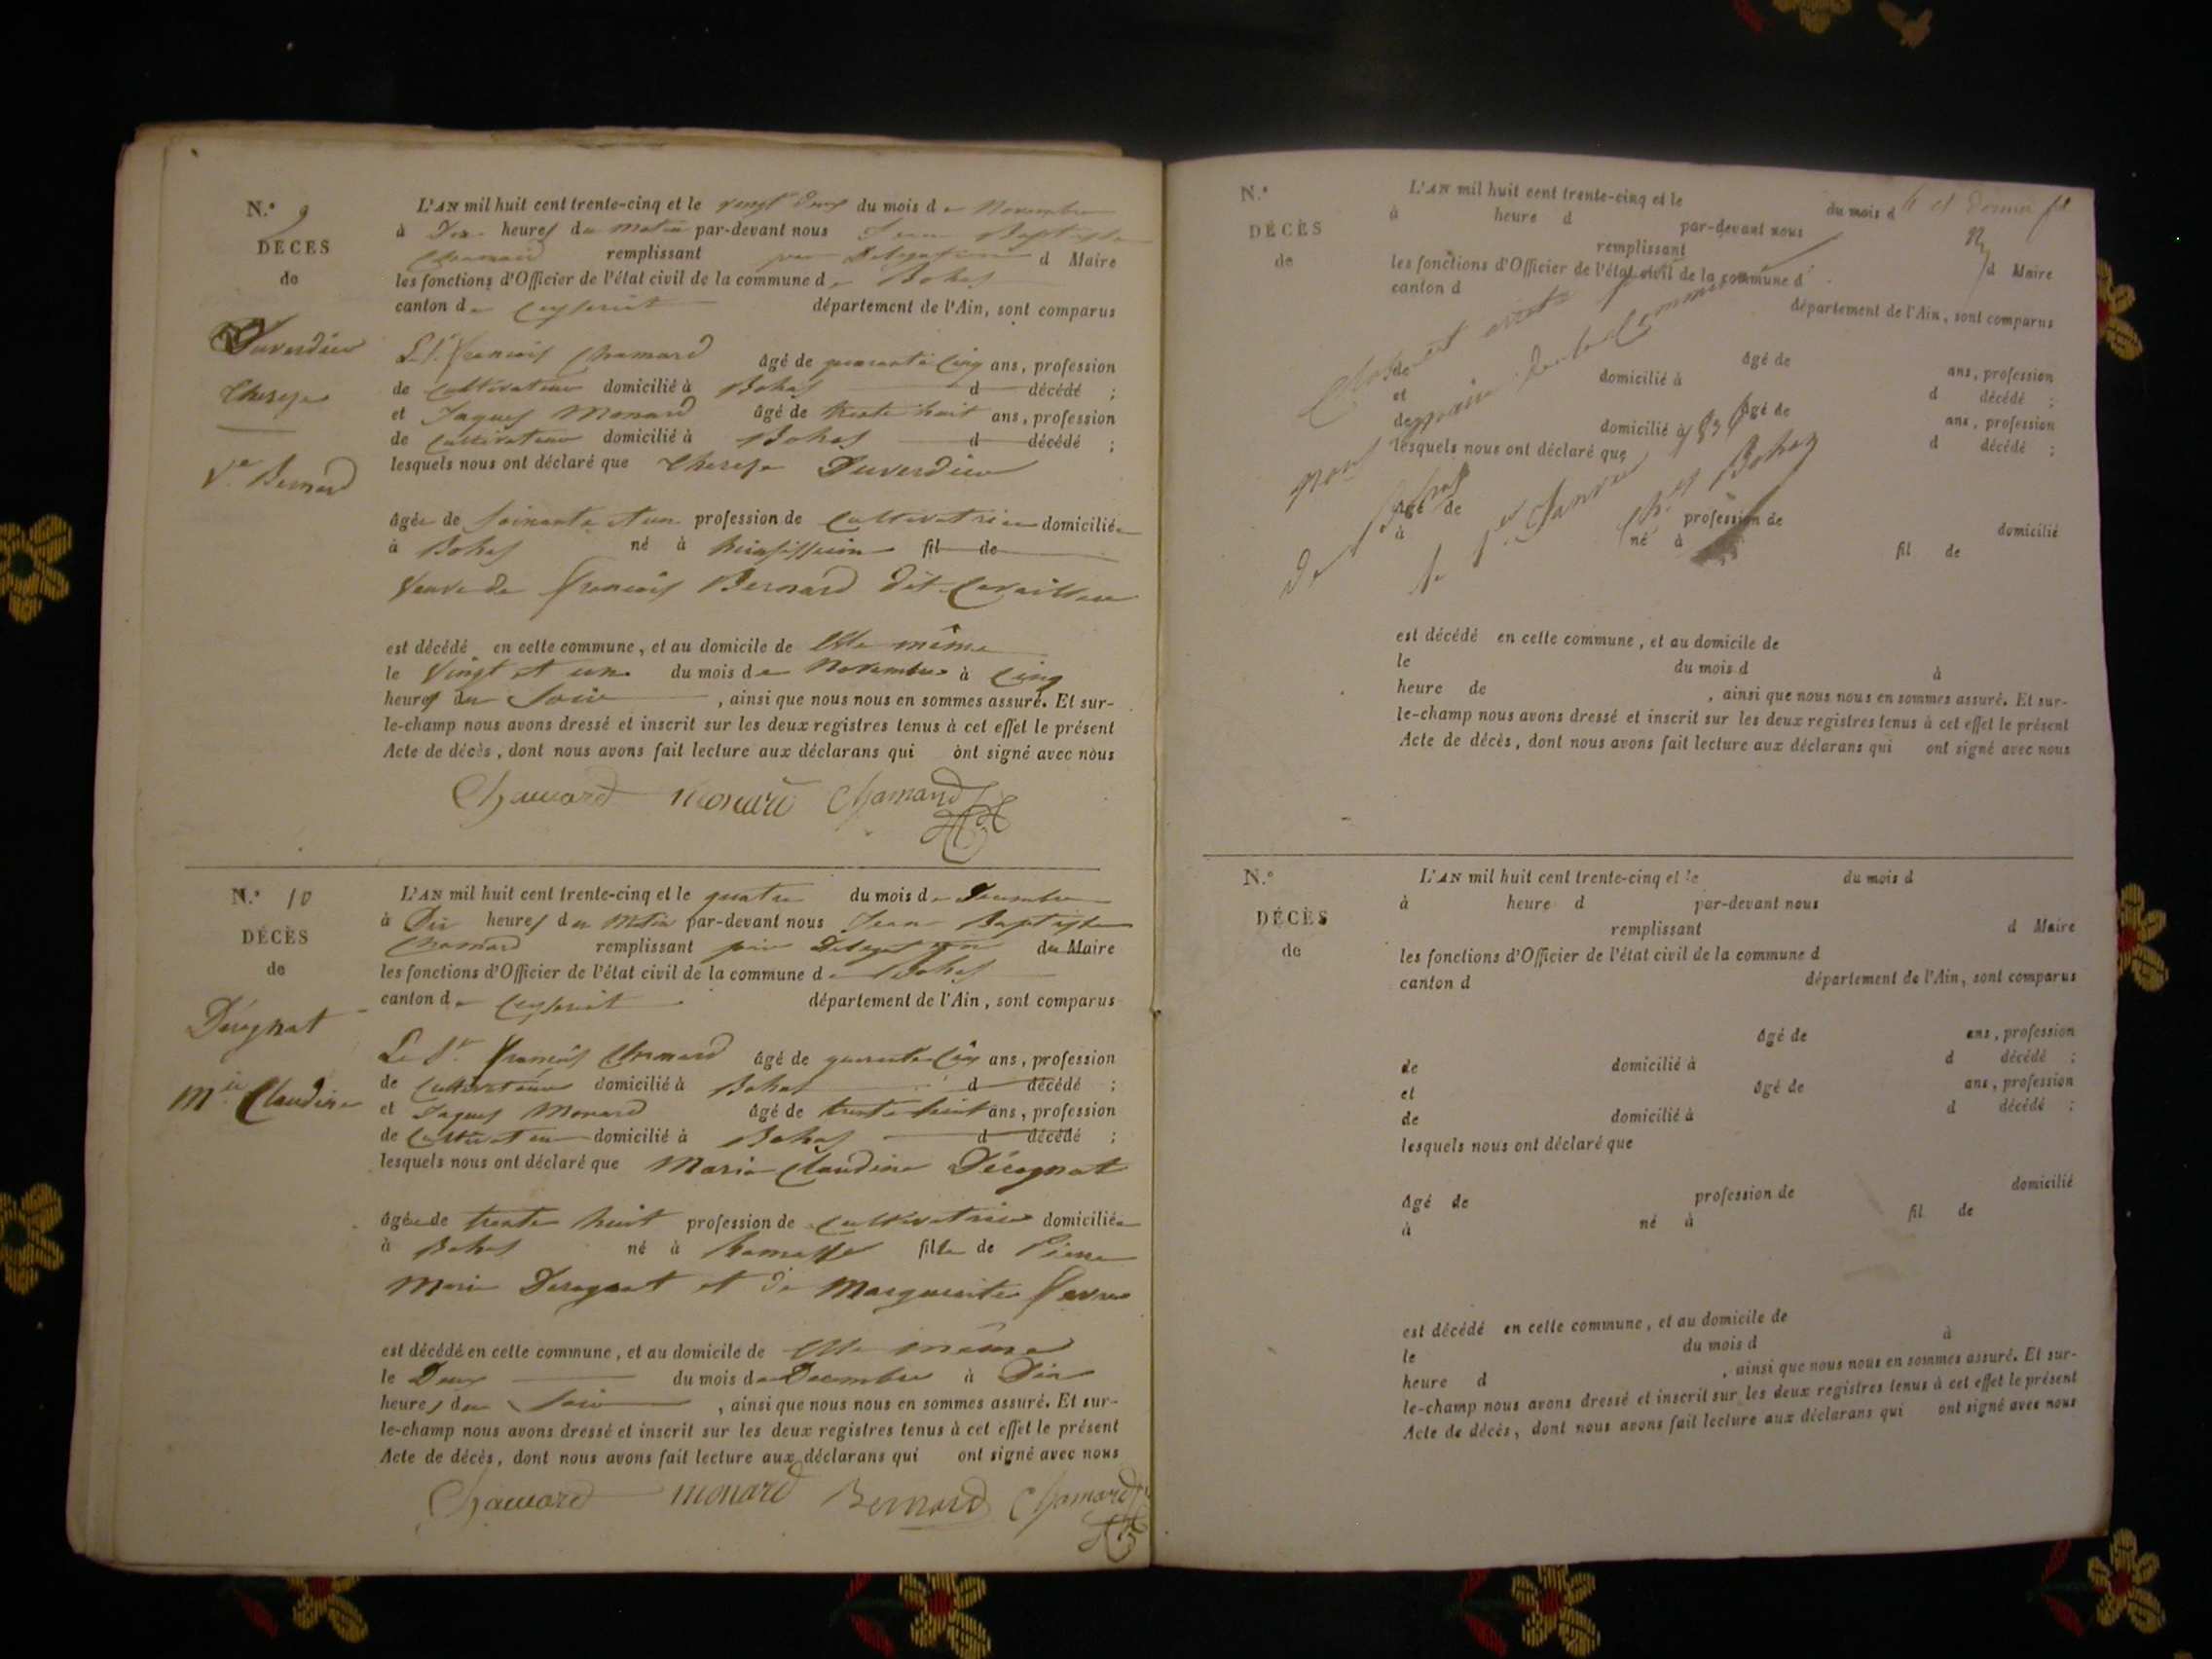 N.° 9
DÉCÈS
de
Duverdieu
Therese
V.e Bernard
L'AN mil huit cent trente-cinq et le vingt deux du mois de Novembre
à Dix heures du Matin par-devant nous Jean Baptiste
Chamard remplissant par Délégation d Maire
les fonctions d'Officier de l'état civil de la commune de Bohas
canton de Ceyseriat département de l'Ain, sont comparus
Le S.r François Chamard âgé de quarante cinq ans, profession
de Cultivateur domicilié à Bohas d décédé ;
et Jaques Monard âgé de trente huit ans, profession
de Cultivateur domicilié à Bohas d décédé ;
lesquels nous ont déclaré que Therese Duverdieu
âgée de soixante et un profession de Cultivatrice domiciliée
à Bohas né à fil de
Veuve de François Bernard dit
est décédé en cette commune, et au domicile de Elle même
le Vingt et un du mois de Novembre à Cinq
heures du Soir , ainsi que nous nous en sommes assuré. Et sur-
le-champ nous avons dressé et inscrit sur les deux registres tenus à cet effet le présent
Acte de décès, dont nous avons fait lecture aux déclarans qui ont signé avec nous
Chamard Monard Chamard
N.° 10
DÉCÈS
de
Décognat
M.ie Claudine
L'AN mil huit cent trente-cinq et le quatre du mois de Decembre
à Dix heures du Matin par-devant nous Jean Baptiste
Chamard remplissant par Délégation du Maire
les fonctions d'Officier de l'état civil de la commune de Bohas
canton de Ceyseriat département de l'Ain, sont comparus
Le S.r François Chamard âgé de quarante cinq ans, profession
de Cultivateur domicilié à Bohas d décédé ;
et Jaques Monard âgé de trente huit ans, profession
de Cultivateur domicilié à Bohas d décédé ;
lesquels nous ont déclaré que Marie Claudine Décognat
âgée de trente huit profession de Cultivatrice domiciliée
à Bohas né à Ramasse fille de Pierre
Marie Decognat et de Marguerite Favre
est décédé en cette commune, et au domicile de Elle même
le Deux du mois de Decembre à Dix
heures du Soir , ainsi que nous nous en sommes assuré. Et sur-
le-champ nous avons dressé et inscrit sur les deux registres tenus à cet effet le présent
Acte de décès, dont nous avons fait lecture aux déclarans qui ont signé avec nous
Chamard Monard Bernard Chamard
N.°
DÉCÈS
de
L'AN mil huit cent trente-cinq et le du mois d
à heure d par-devant nous
remplissant d Maire
les fonctions d'Officier de l'état civil de la commune d
canton d département de l'Ain, sont comparus
âgé de ans, profession
de domicilié à d décédé ;
et âgé de ans, profession
de domicilié à d décédé ;
lesquels nous ont déclaré que
âgé de profession de domicilié
à né à fil de
est décédé en cette commune, et au domicile de
le du mois d à
heure de , ainsi que nous nous en sommes assuré. Et sur-
le-champ nous avons dressé et inscrit sur les deux registres tenus à cet effet le présent
Acte de décès, dont nous avons fait lecture aux déclarans qui ont signé avec nous
6 et dernier
Clos et arreté par
nous maire de la Commune
de Bohas
le 1.er Janvier 1836
N.°
DÉCÈS
de
L'AN mil huit cent trente-cinq et le du mois d
à heure d par-devant nous
remplissant d Maire
les fonctions d'Officier de l'état civil de la commune d
canton d département de l'Ain, sont comparus
âgé de ans, profession
de domicilié à d décédé ;
et âgé de ans, profession
de domicilié à d décédé ;
lesquels nous ont déclaré que
âgé de profession de domicilié
à né à fil de
est décédé en cette commune, et au domicile de
le du mois d à
heure d , ainsi que nous nous en sommes assuré. Et sur-
le-champ nous avons dressé et inscrit sur les deux registres tenus à cet effet le présent
Acte de décès, dont nous avons fait lecture aux déclarans qui ont signé avec nous